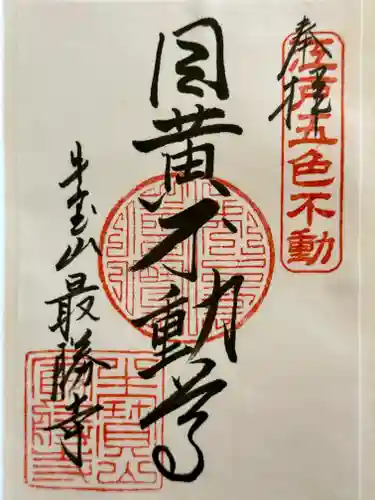 奉拝
江戸五色不動
目黄不動尊
牛宝山最勝寺